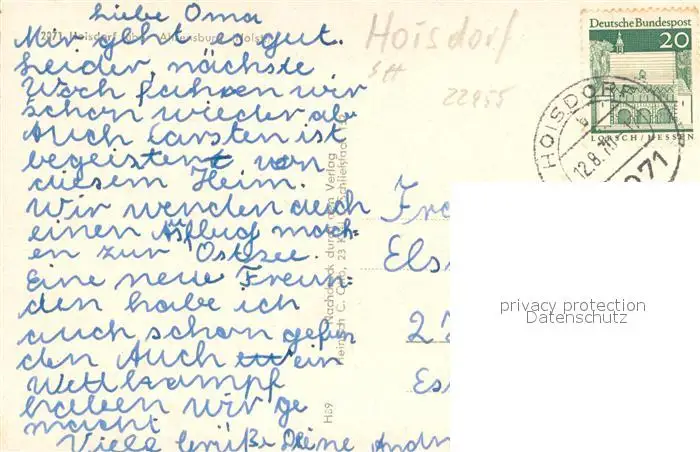 Liebe Oma
2071 Hoisdorf über Ahrensburg (Holst)
Mir geht es gut.
Leider, nächste
Woch fahren wir
schon wieder ab
Auch Carsten ist
begeistert von
diesem Heim.
Wir wenden auch
einen Ausflug mach=
en zur Ostsee.
Eine neue Freun=
den habe ich
auch schon gefun
den Auch ein
Wettkampf
haben wir ge
macht
Viele Grüße Deine Andr
Hoisdorf
SH
22955
Deutsche Bundespost
20
LORSCH/HESSEN
HOISDORF
12.8.70
2071
Fra
Els
22
Es
Nachdruck durch den Verlag
Heinrich C.
23 Kiel, Schließfach
H89
privacy protection
Datenschutz